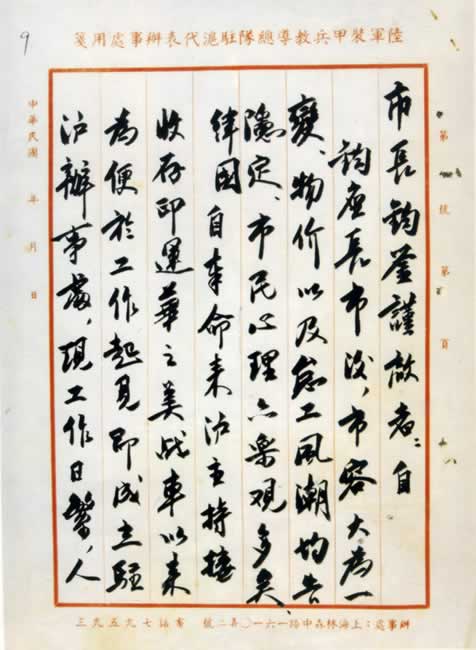 陸軍裝甲兵教導總隊駐滬代表辦事處用箋
第 號 第 頁
市長鈞鋻謹敬者:自
鈞座長市後,市容大為一
變、物价以及怠工風潮均告
隱定、市民心理亦樂觀多矣、
緯國自奉命来沪主持接
收存印運華之美战車以来
為便於工作起見即成立駐
沪辦事處,現工作日繁,人
中華民國 年 月 日
辦事處:上海林森中路一六一〇弄二號 電話七九五九三
9